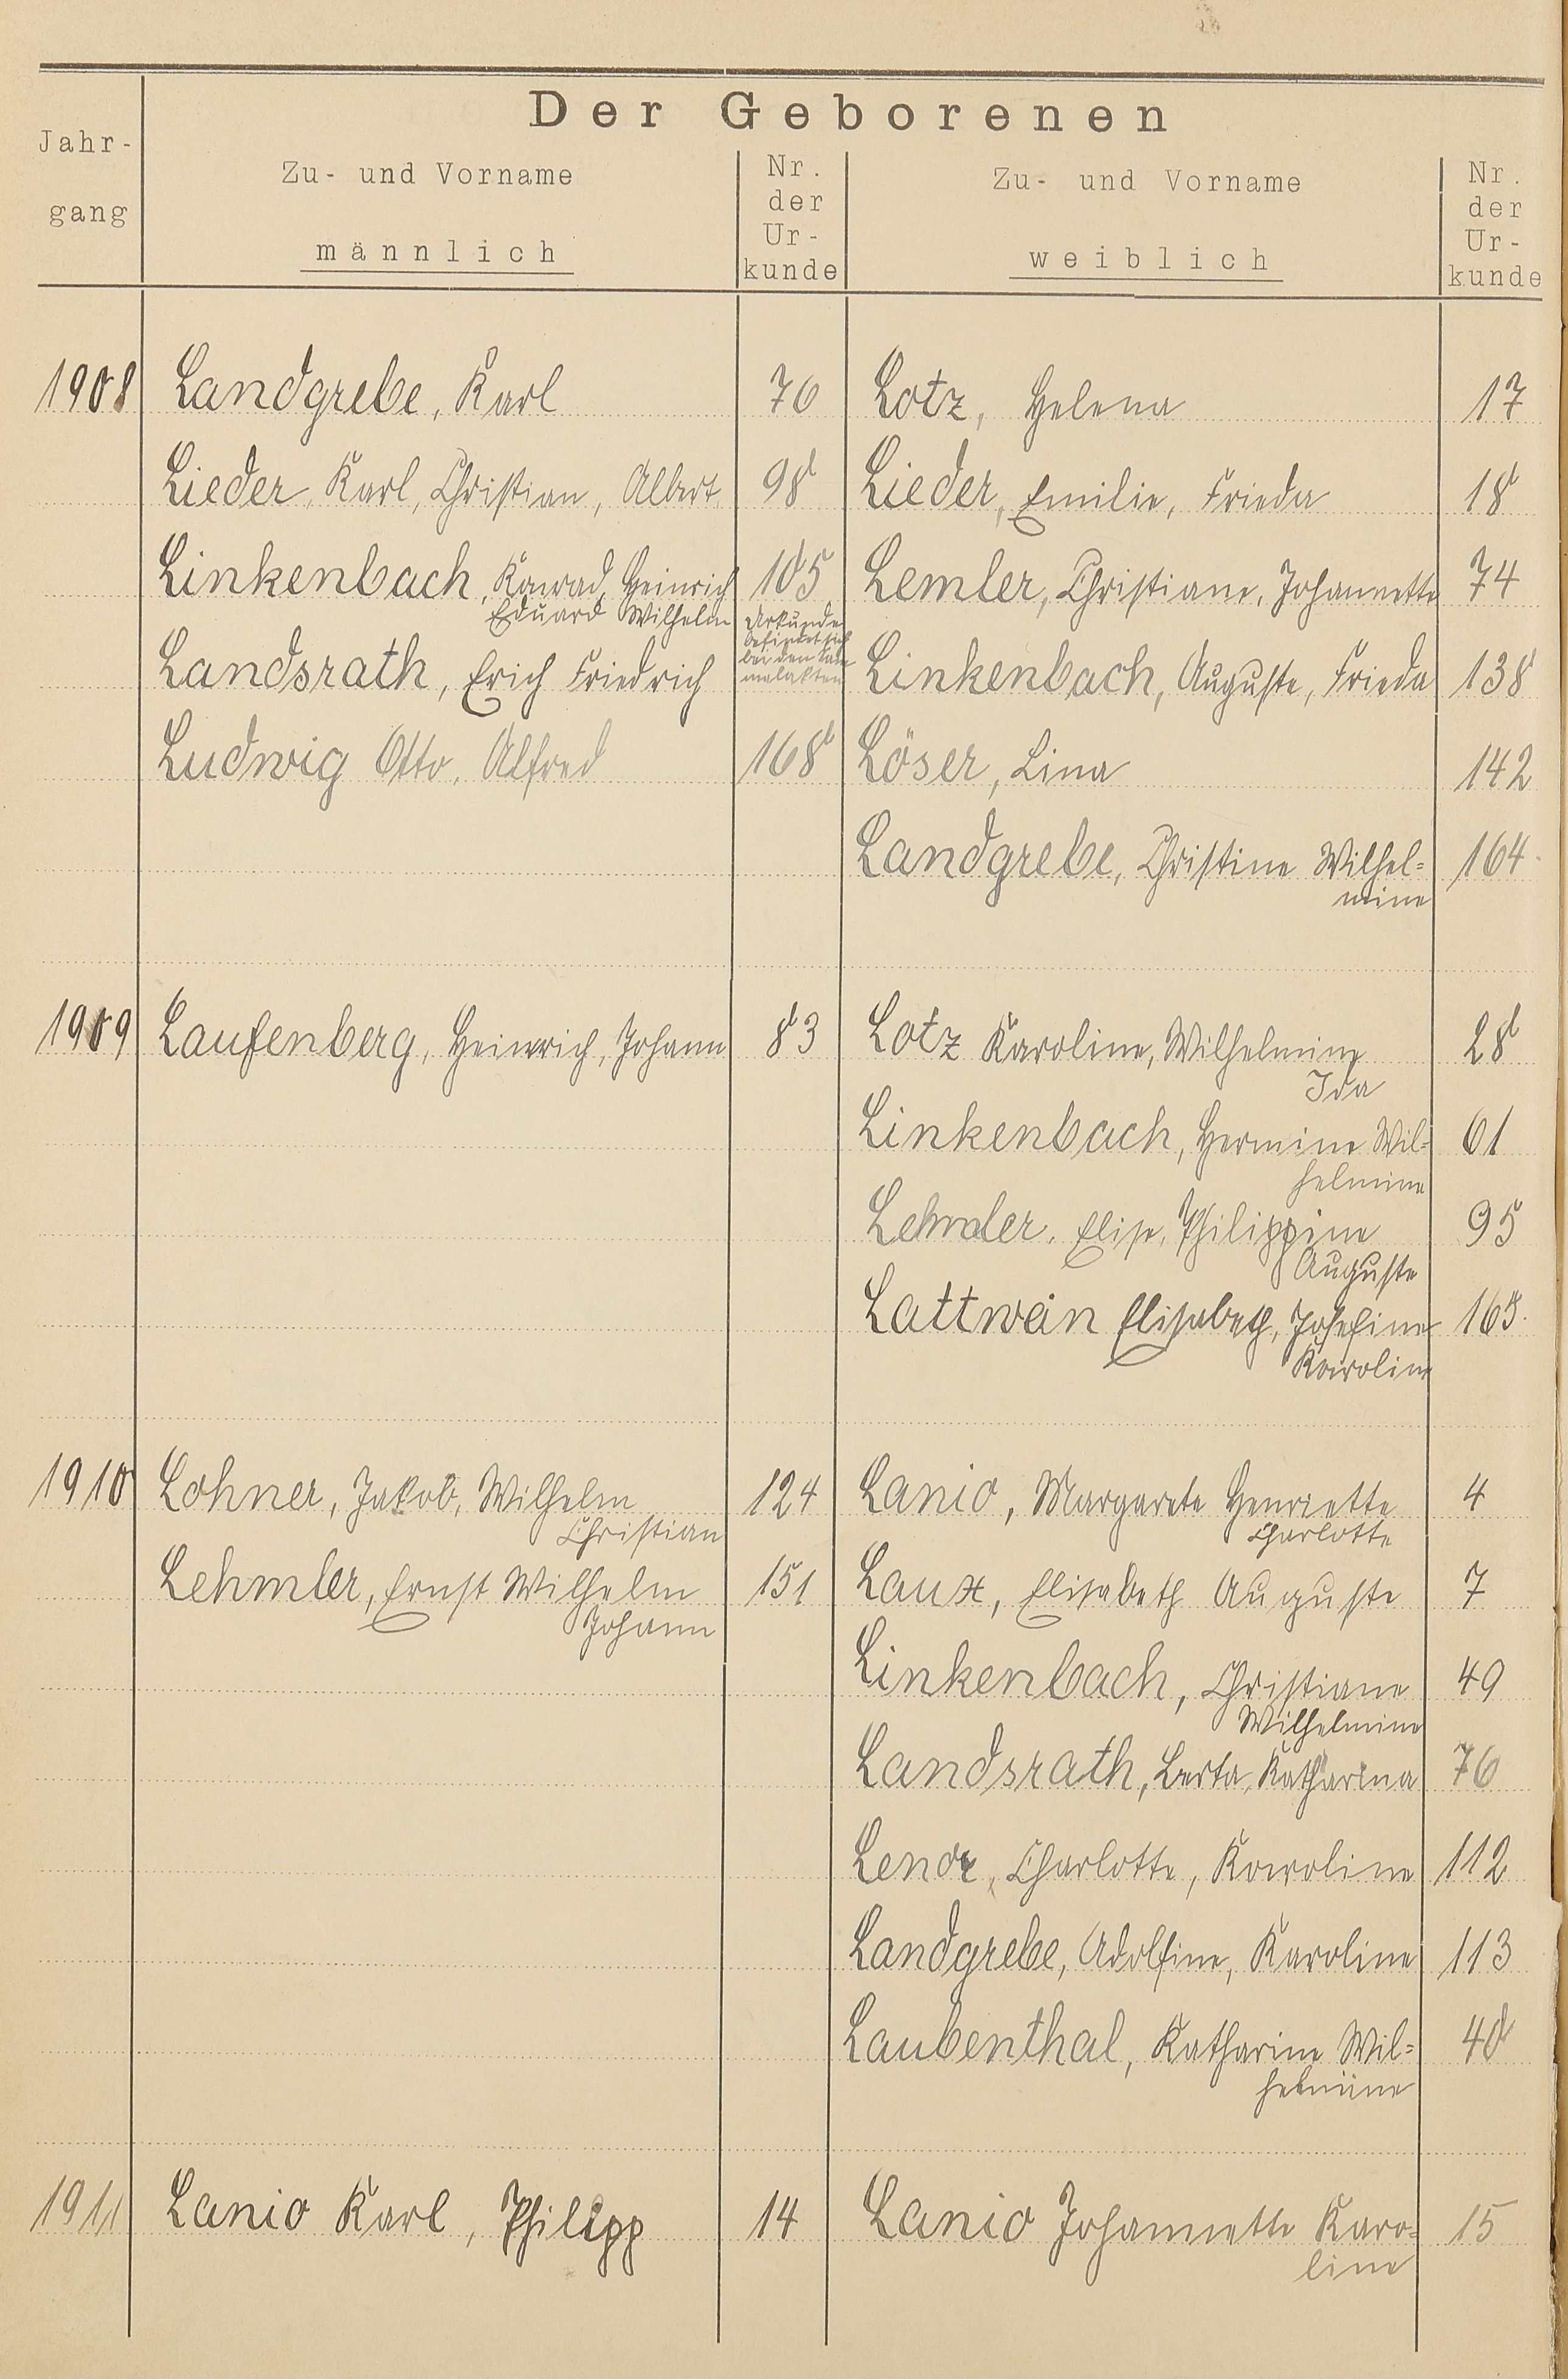 Der Geborenen
Jahr-
gang
Zu- und Vorname
männlich
Nr.
der
Ur-
kunde
Zu- und Vorname
weiblich
Nr.
der
Ur-
kunde
1908 Landgrebe, Karl 76 Lotz, Helena 17
Lieder, Karl, Christian, Albert 98 Lieder, Emilie, Frieda 18
Linkenbach, Konrad, Heinrich 105 Lemler, Christiane, Johannette 74
Eduard Wilhelm Urkunde
befindet sich
bei den
Landsrath, Erich Friedrich Linkenbach, Auguste, Frieda 138
Ludwig Otto, Alfred 168 Löser, Lina 142
Landgrebe, Christine Wilhel= 164
mine
1909 Laufenberg, Heinrich, Johann 83 Lotz Karoline, Wilhelmine 28
Ida
Linkenbach, Hermine Wil= 61
helmine
Lehmler, Elise, Philippine 95
Auguste
Lattwein Elisabeth, Josefine 165
Karoline
1910 Lohner, Jakob, Wilhelm 124 Lanio, Margarete Henriette 4
Christian Charlotte
Lehmler, Ernst Wilhelm 151 Laux, Elisabeth Auguste 7
Johann
Linkenbach, Christiane 49
Wilhelmine
Landsrath, Berta, Katharina 76
Charlotte, Karoline 112
Landgrebe, Adolfine, Karoline 113
Laubenthal, Katharine Wil= 40
helmine
1911 Lanio Karl, Philipp 14 Lanio Johannette Karo= 15
line